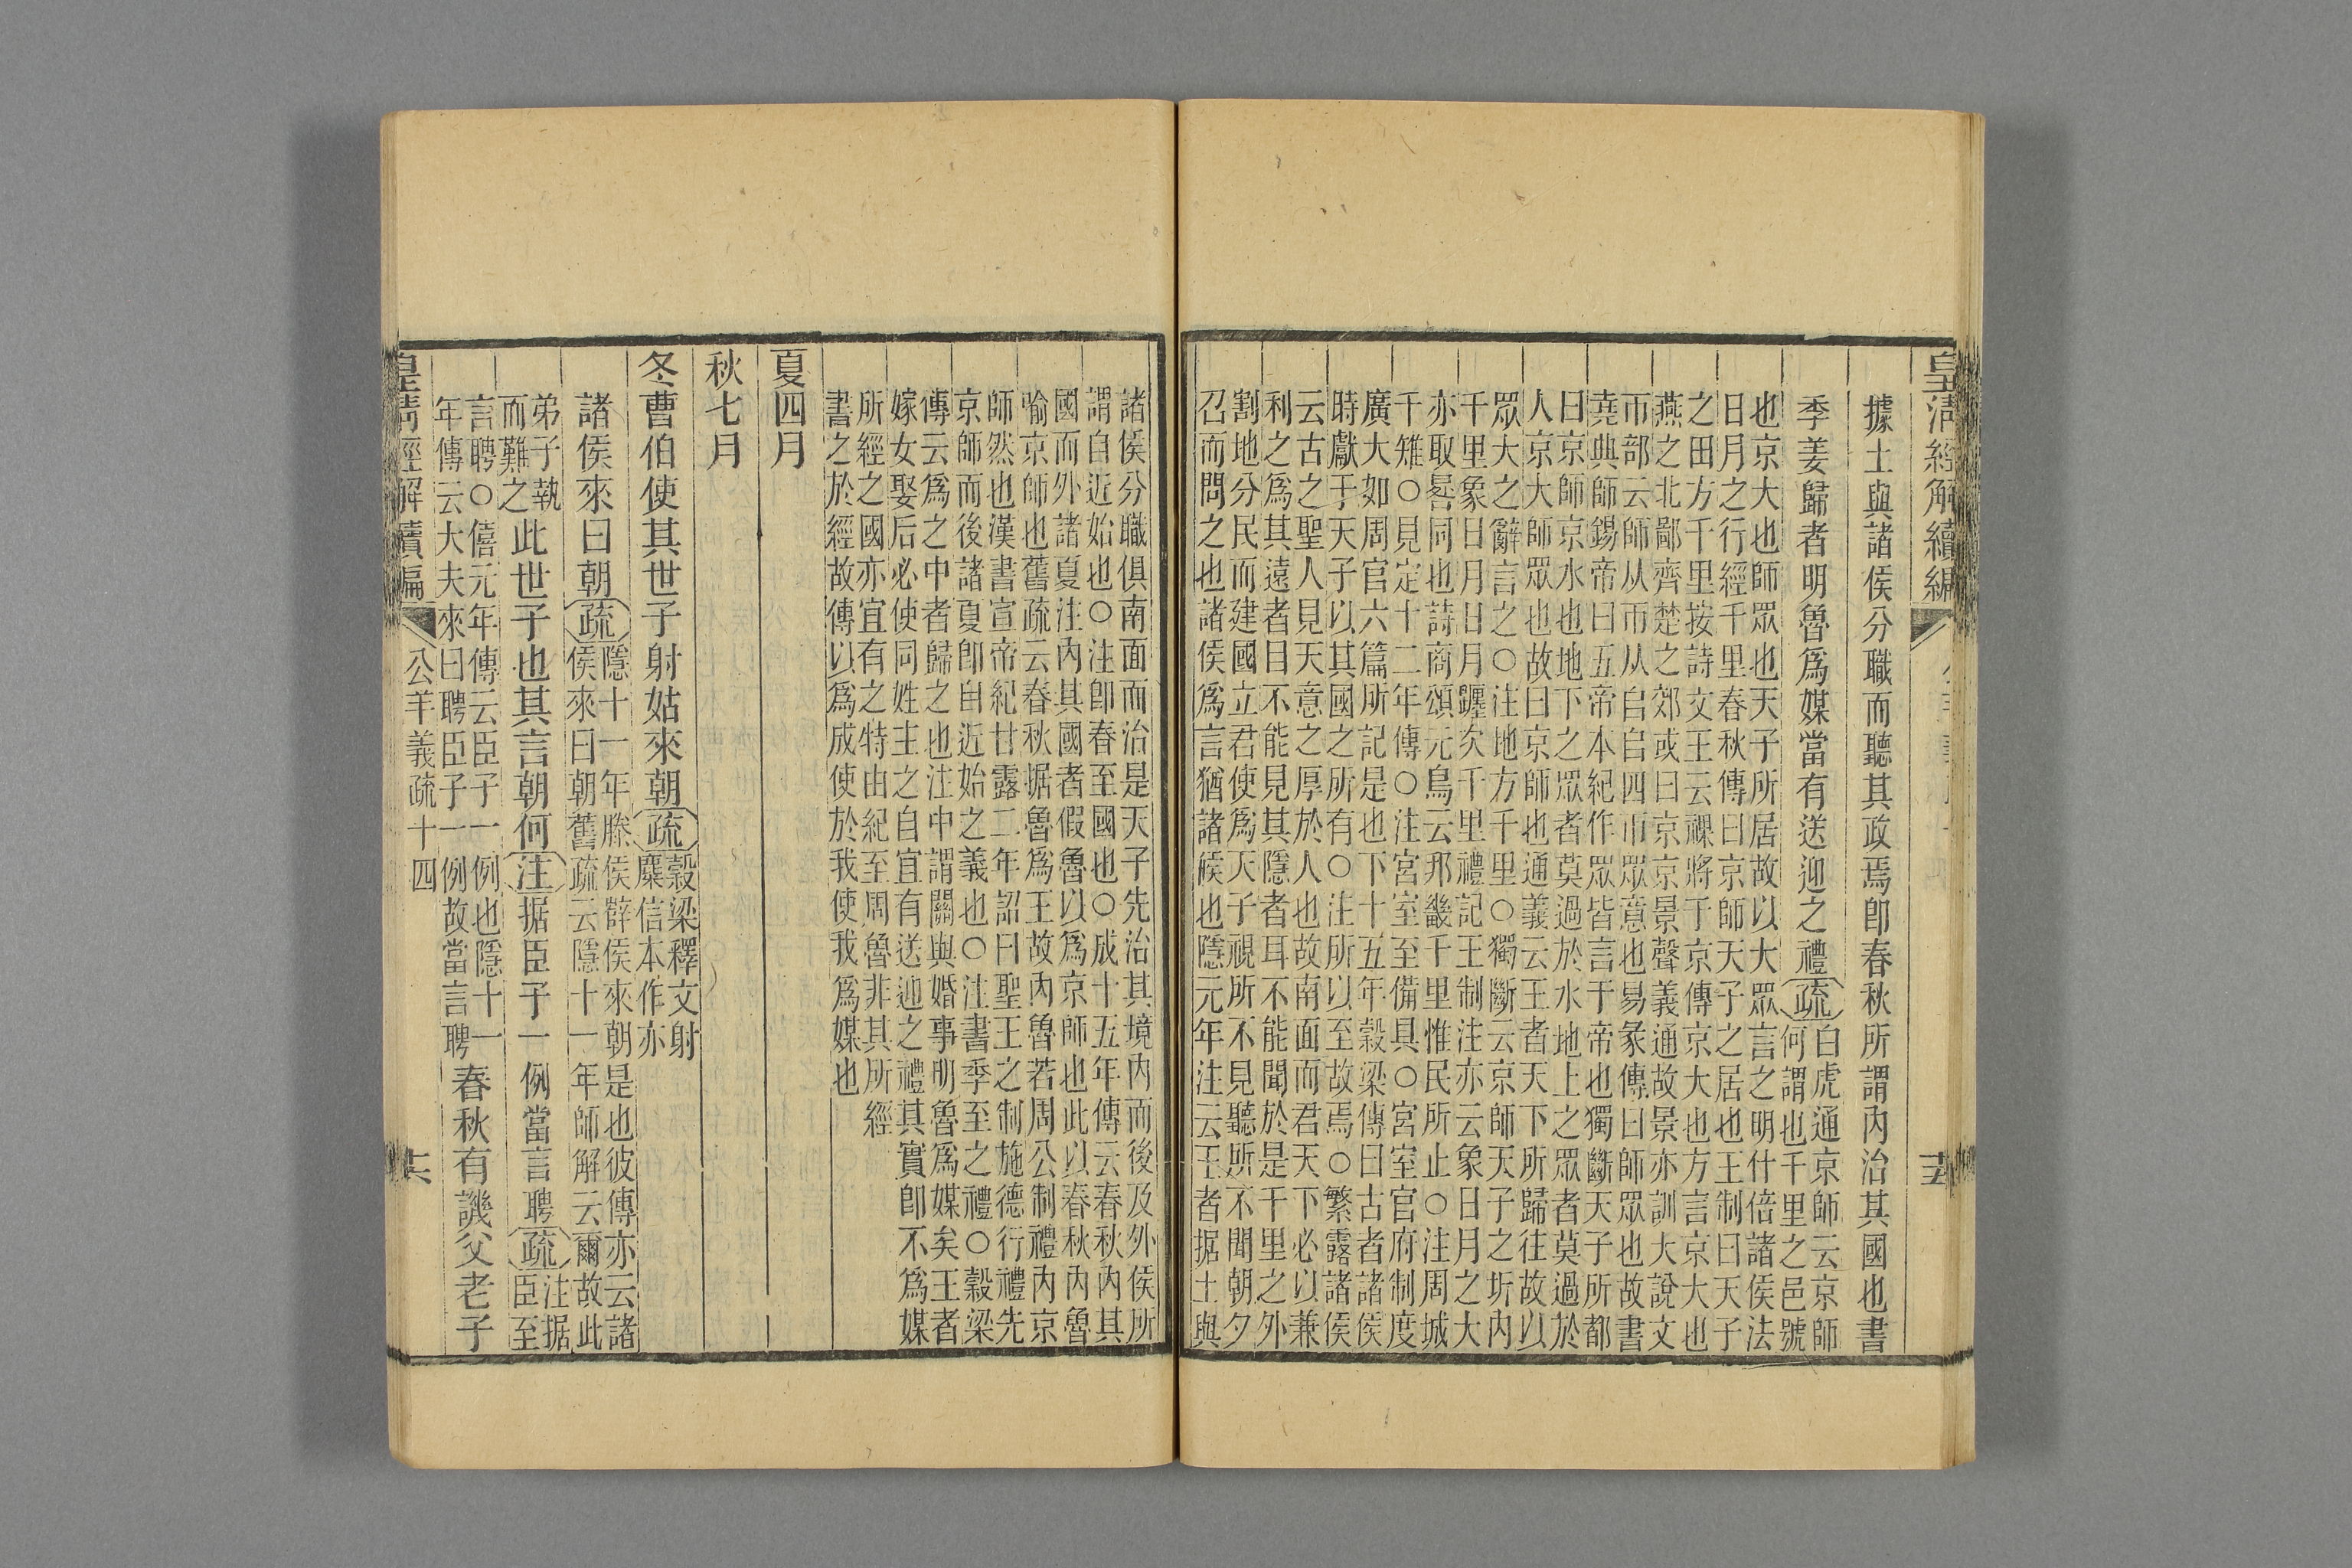 皇清經解續編
據土與諸侯分職而聽其政焉卽春秋所謂內治其國也書
季姜歸者明魯爲媒當有送迎之禮疏白虎通京師云京師
何謂也千里之邑號
也京大也師眾也天子所居故以大眾言之明什倍諸侯法
日月之行經千里春秋傳曰京師天子之居也王制曰天子
之田方千里按詩文王云祼將于京傳京大也方言京大也
燕之北鄙齊楚之郊或曰京京景聲義通故景亦訓大說文
帀部云師从帀从𠂤𠂤四帀眾意也易彖傳曰師眾也故書
堯典師錫帝曰五帝本紀作眾皆言于帝也獨斷天子所都
曰京師京水也地下之眾者莫過於水地上之眾者莫過於
人京大師眾也故曰京師也通義云王者天下所歸往故以
眾大之辭言之○注地方千里○獨斷云京師天子之圻內
千里象日月日月躔次千里禮記王制注亦云象日月之大
亦取晷同也詩商頌元鳥云邦畿千里惟民所止○注周城
千雉○見定十二年傳○注宮室至備具○宮室官府制度
廣大如周官六篇所記是也下十五年穀梁傳曰古者諸侯
時獻于天子以其國之所有○注所以至故焉○繁露諸侯
云古之聖人見天意之厚於人也故南面而君天下必以兼
利之爲其遠者目不能見其隱者耳不能聞於是千里之外
割地分民而建國立君使爲天子視所不見聽所不聞朝夕
召而問之也諸侯爲言猶諸候也隱元年注云王者据土與
諸侯分職俱南面而治是天子先治其境內而後及外侯所
謂自近始也○注卽春至國也○成十五年傳云春秋內其
國而外諸夏注內其國者假魯以爲京師也此以春秋內魯
喻京師也舊疏云春秋据魯爲王故內魯若周公制禮內京
師然也漢書宣帝紀甘露二年詔曰聖王之制施德行禮先
京師而後諸夏卽自近始之義也○注書季至之禮○穀梁
傳云爲之中者歸之也注中謂關與婚事明魯爲媒矣王者
嫁女娶后必使同姓主之自宜有送迎之禮其實卽不爲媒
所經之國亦宜有之特由紀至周魯非其所經
書之於經故傳以爲成使於我使我爲媒也
夏四月
秋七月
冬曹伯使其世子射姑來朝疏穀梁釋文射
麋信本作亦
諸侯來曰朝疏隱十一年滕侯辥侯來朝是也彼傳亦云諸
侯來曰朝舊疏云隱十一年師解云爾故此
弟子執
而難之此世子也其言朝何注据臣子一例當言聘疏注据
臣至
言聘○僖元年傳云臣子一例也隱十一
年傳云大夫來曰聘臣子一例故當言聘春秋有譏父老子
皇清經解續編
公羊義疏十四